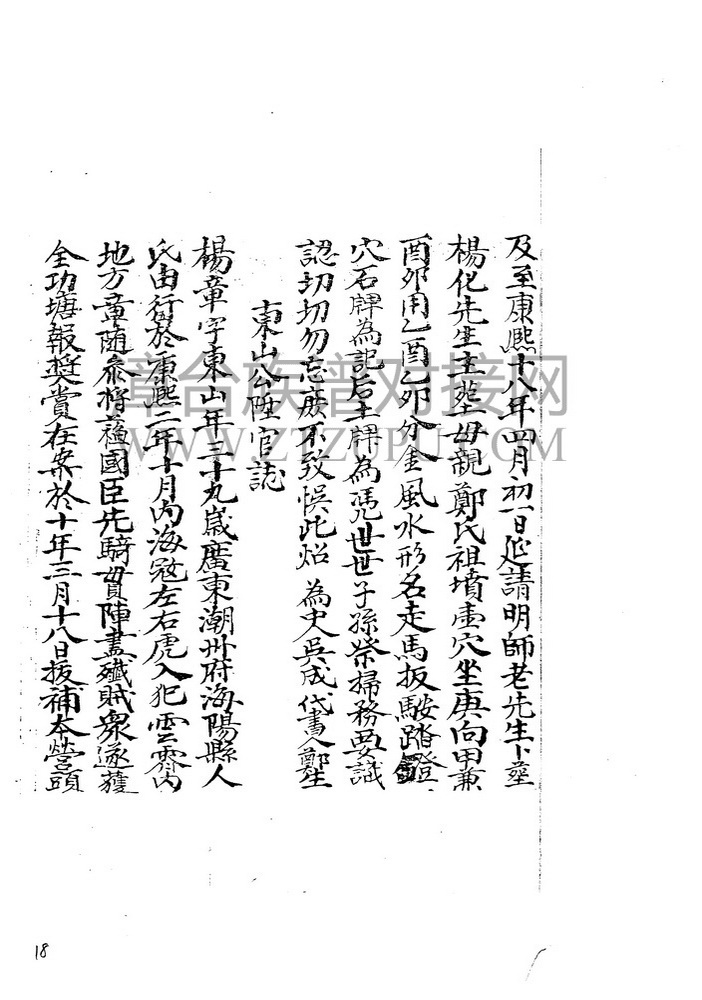 及至康熙十八年四月初一日延請明師老先生卜塋
楊化先生主塋母親鄭氏祖墳壹穴坐庚向甲兼
酉卯用乙酉乙卯分金風水形名走馬扳鞍踏鐙
穴石牌為記后土牌為凴世世子孫祭掃務要識
認切切勿忘廢不致悮此炤 為史吳成代書人鄭生
東山公陞官誌
楊章字東山年三十九歲廣東潮州府海陽縣人
氏由行於康熙二年十月內海冦左右虎入犯雲霄內
地方章随叅將國臣先騎貫陣盡殲賊眾遂獲
全功塘報奬賞在案於十年三月十八日拔補本營頭
章台族譜对接网
WWW.ZTZUPU.COM
18